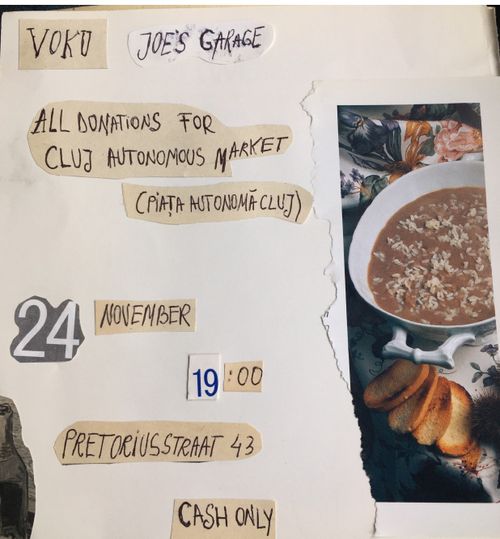 VOKU
JOE'S GARAGE
ALL DONATIONS FOR
CLUJ AUTONOMOUS MARKET
(PIAȚA AUTONOMĂ CLUJ)
24 NOVEMBER
19:00
PRETORIUSSTRAAT 43
CASH ONLY